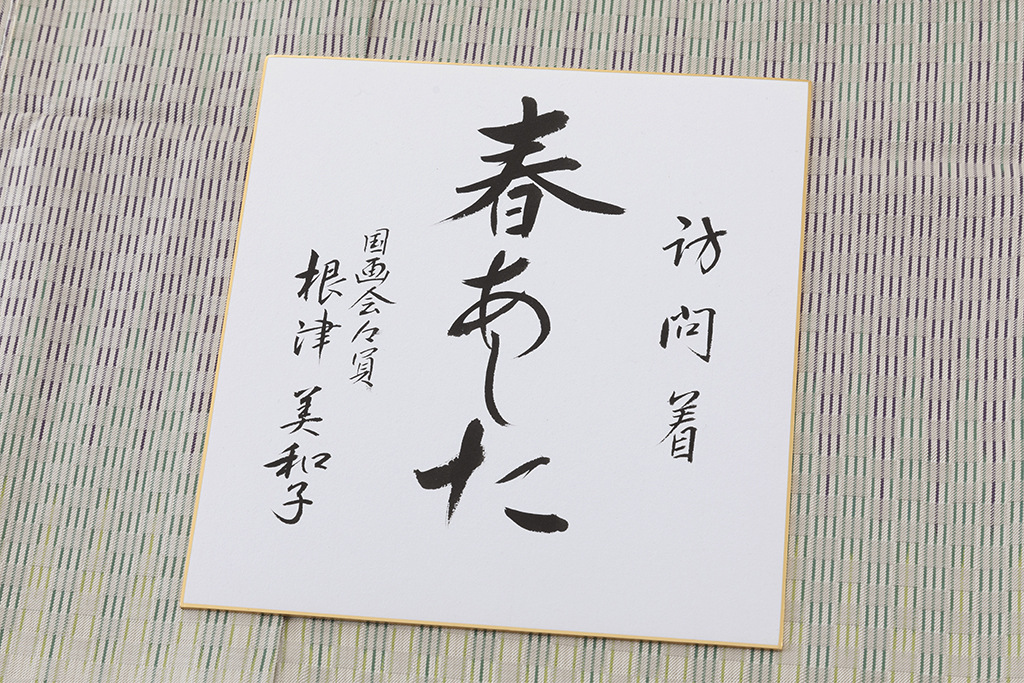 訪問着
春あした
国画会々員
根津美和子